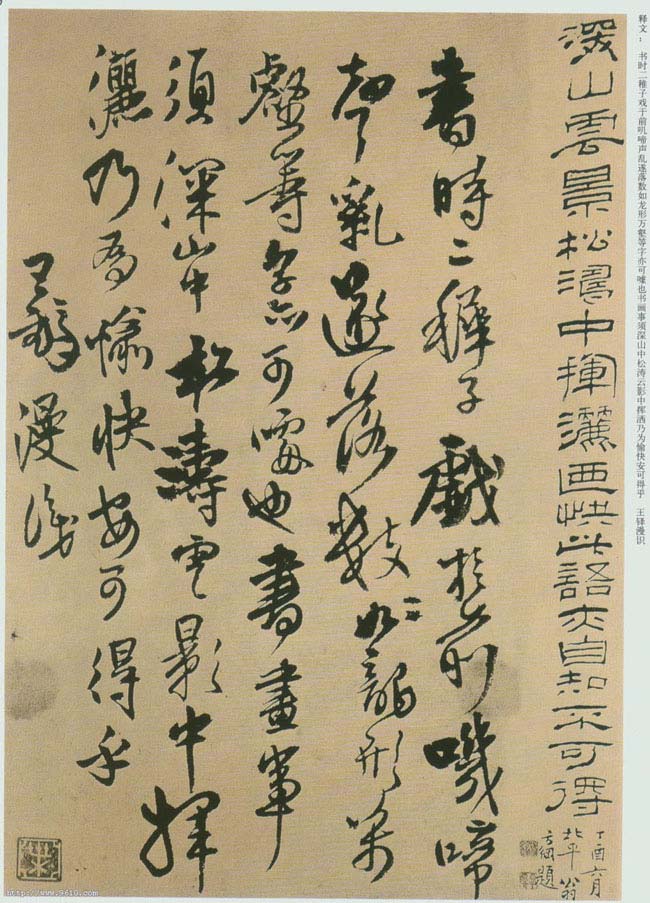 释文： 书时二稚子戏于前叽啼声乱遂落数如龙形万壑等字亦可噱也书画事须深山中松涛云影中挥洒乃为愉快安可得乎 王铎漫识
深山雲景松濤中揮灑画快此語亦自知不可得
丁酉六月
北平翁
方綱題
書時二稺子戲於前嘰啼
聲亂遂落數如龍形萬
壑等字亦可噱也書畫事
須深山中松濤雲影中揮
灑乃為愉快安可得乎
王鐸漫識
http://www.9610.com